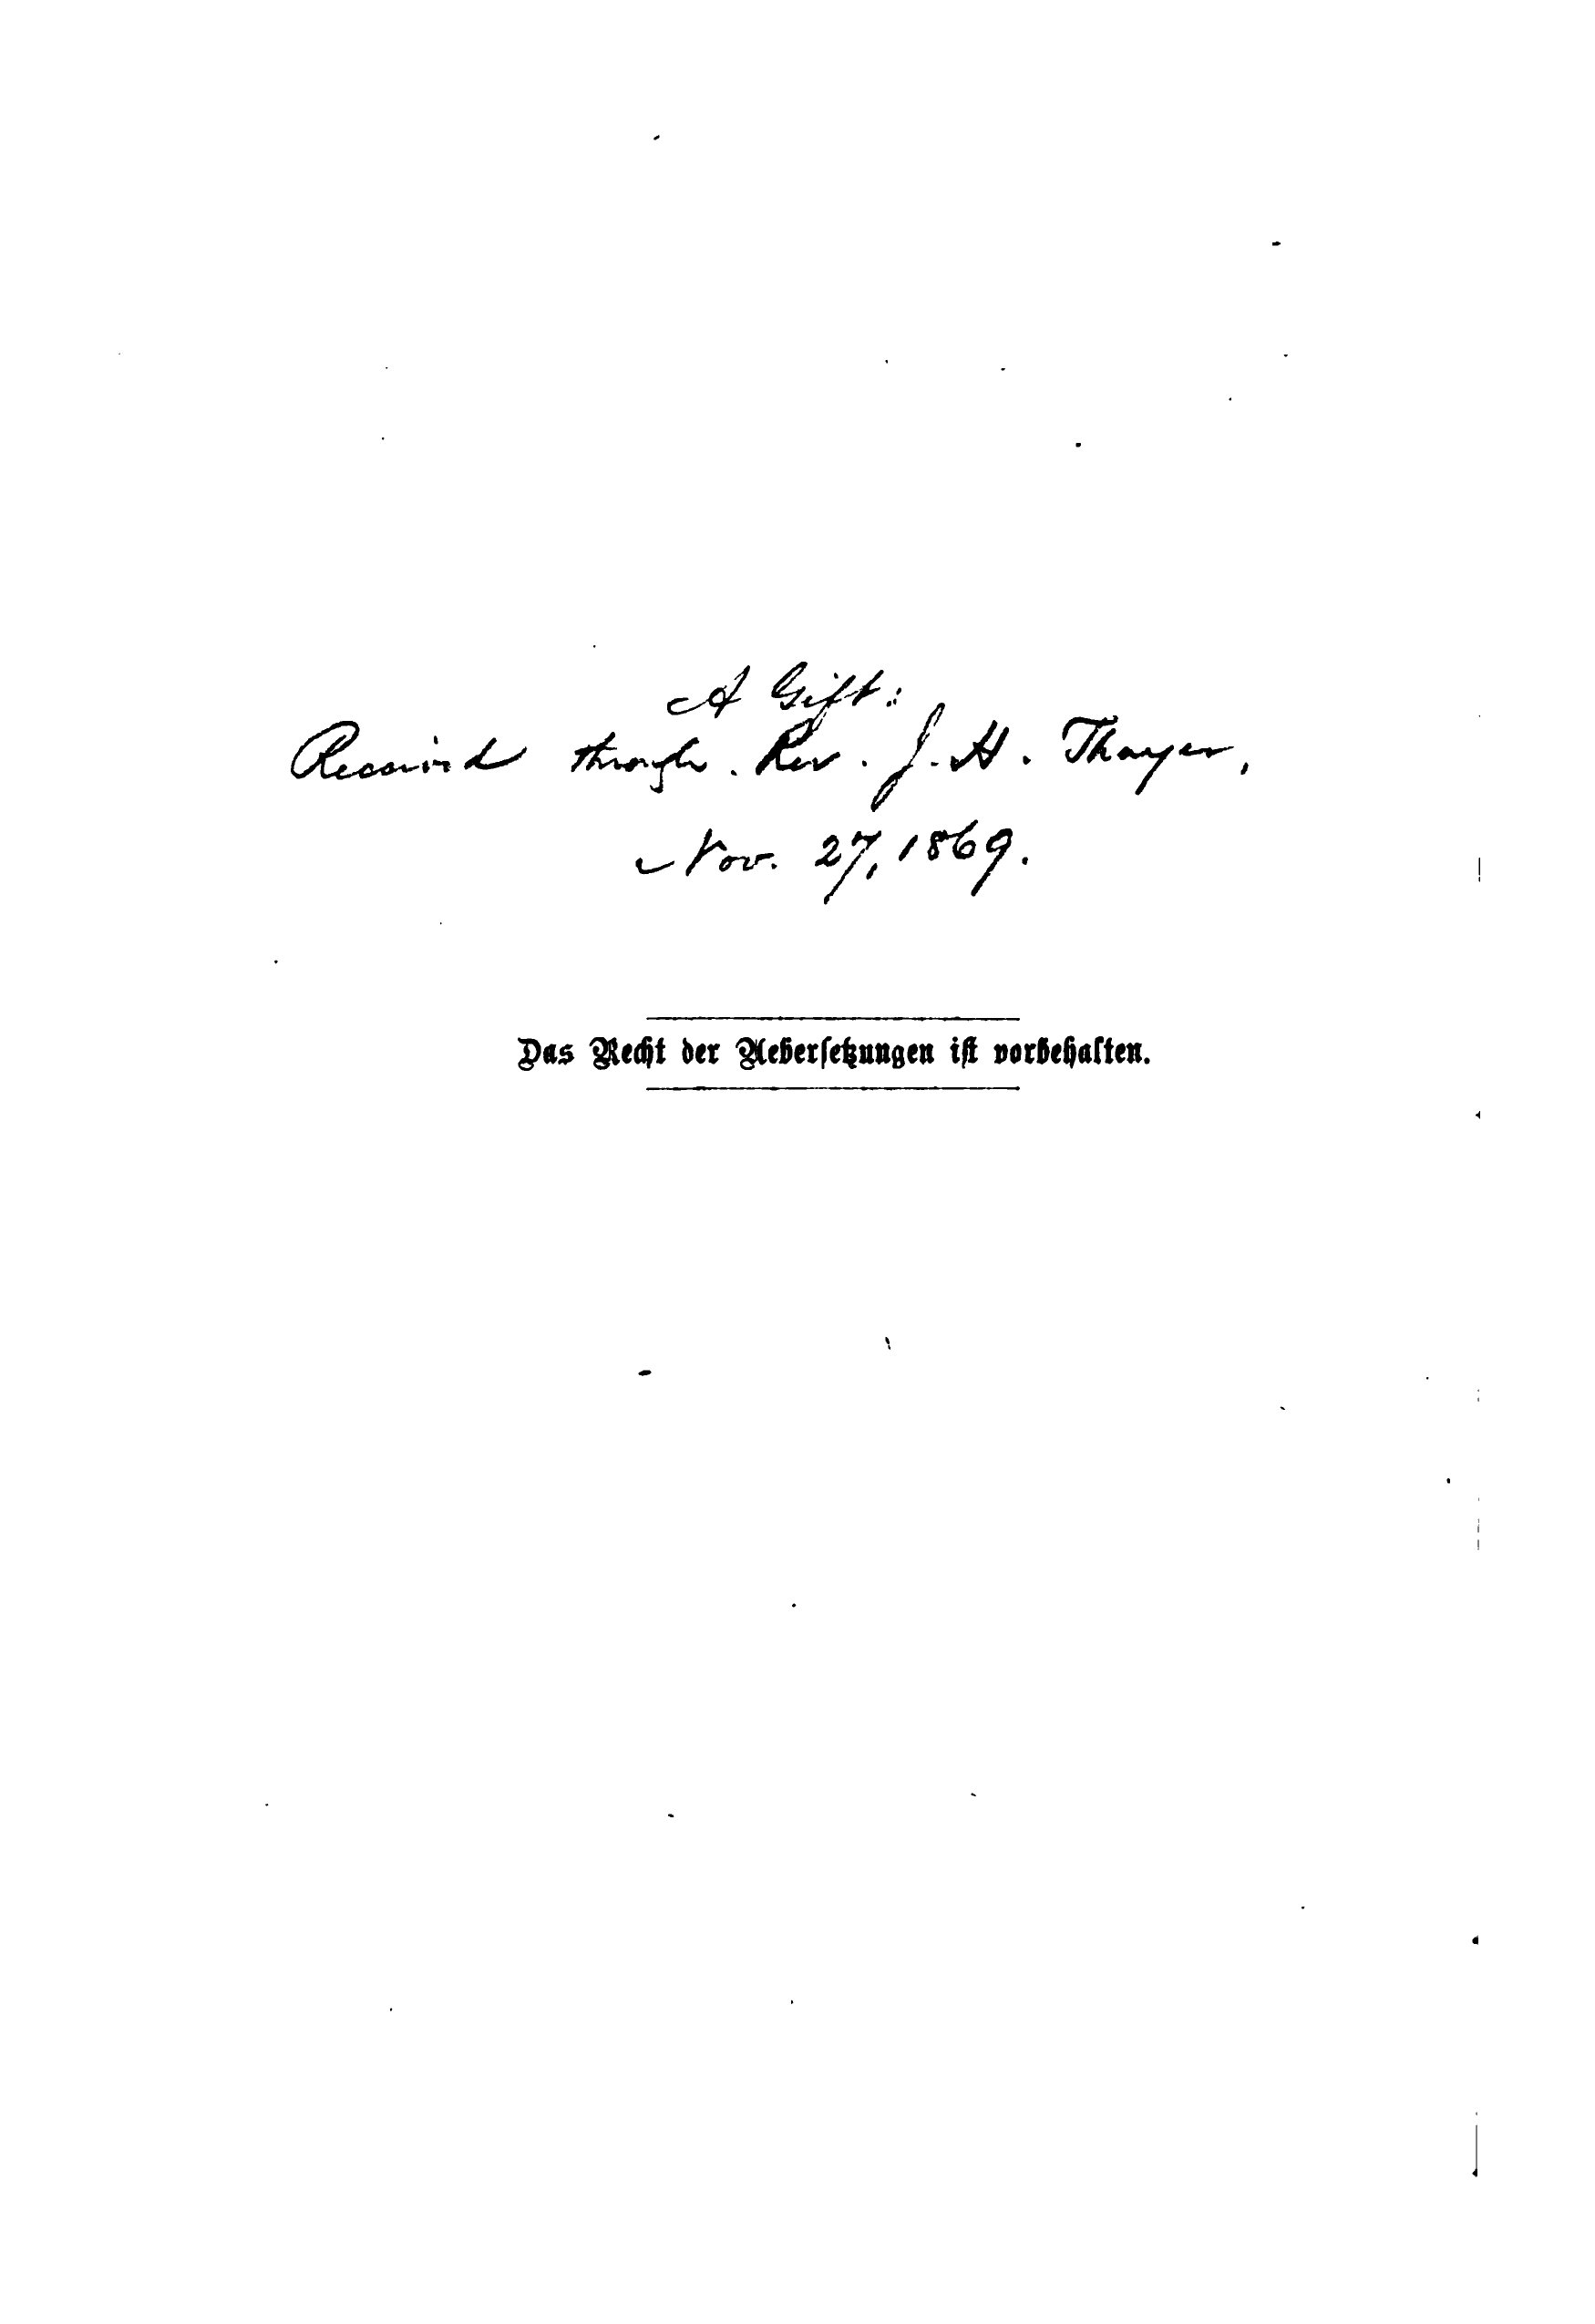 A Gift:
Received through Rev. J. H. Thayer,
Nov. 27, 1869.
Das Recht der Uebersetzungen ist vorbehalten.